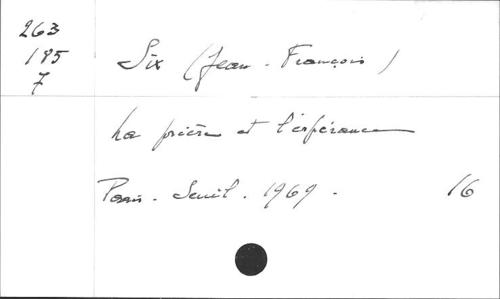 263
185
7
Six (Jean-François)
La prière et l'espérance
Paris. Seuil. 1969.
16